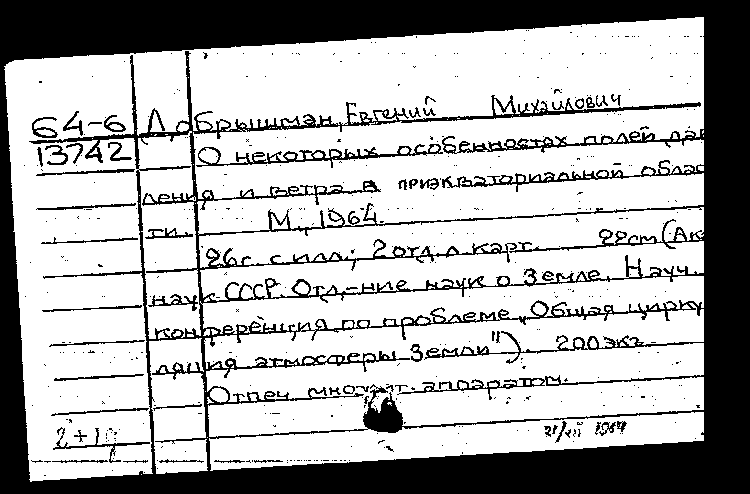 64-6 Добрышман, Евгений Михайлович
13742 О некоторых особенностях полей дав
ления и ветра в приэкваториальной облас
ти. М., 1964.
26с. с илл.; 2 отд. л. карт. 22cm (Ак.
наук СССР. Отд-ние наук о Земле. Науч.
конференция по проблеме „Общая цирку
ляция атмосферы Земли"). 200 экз.
Отпеч. множит. аппаратом.
2+1д 21/VII 1964